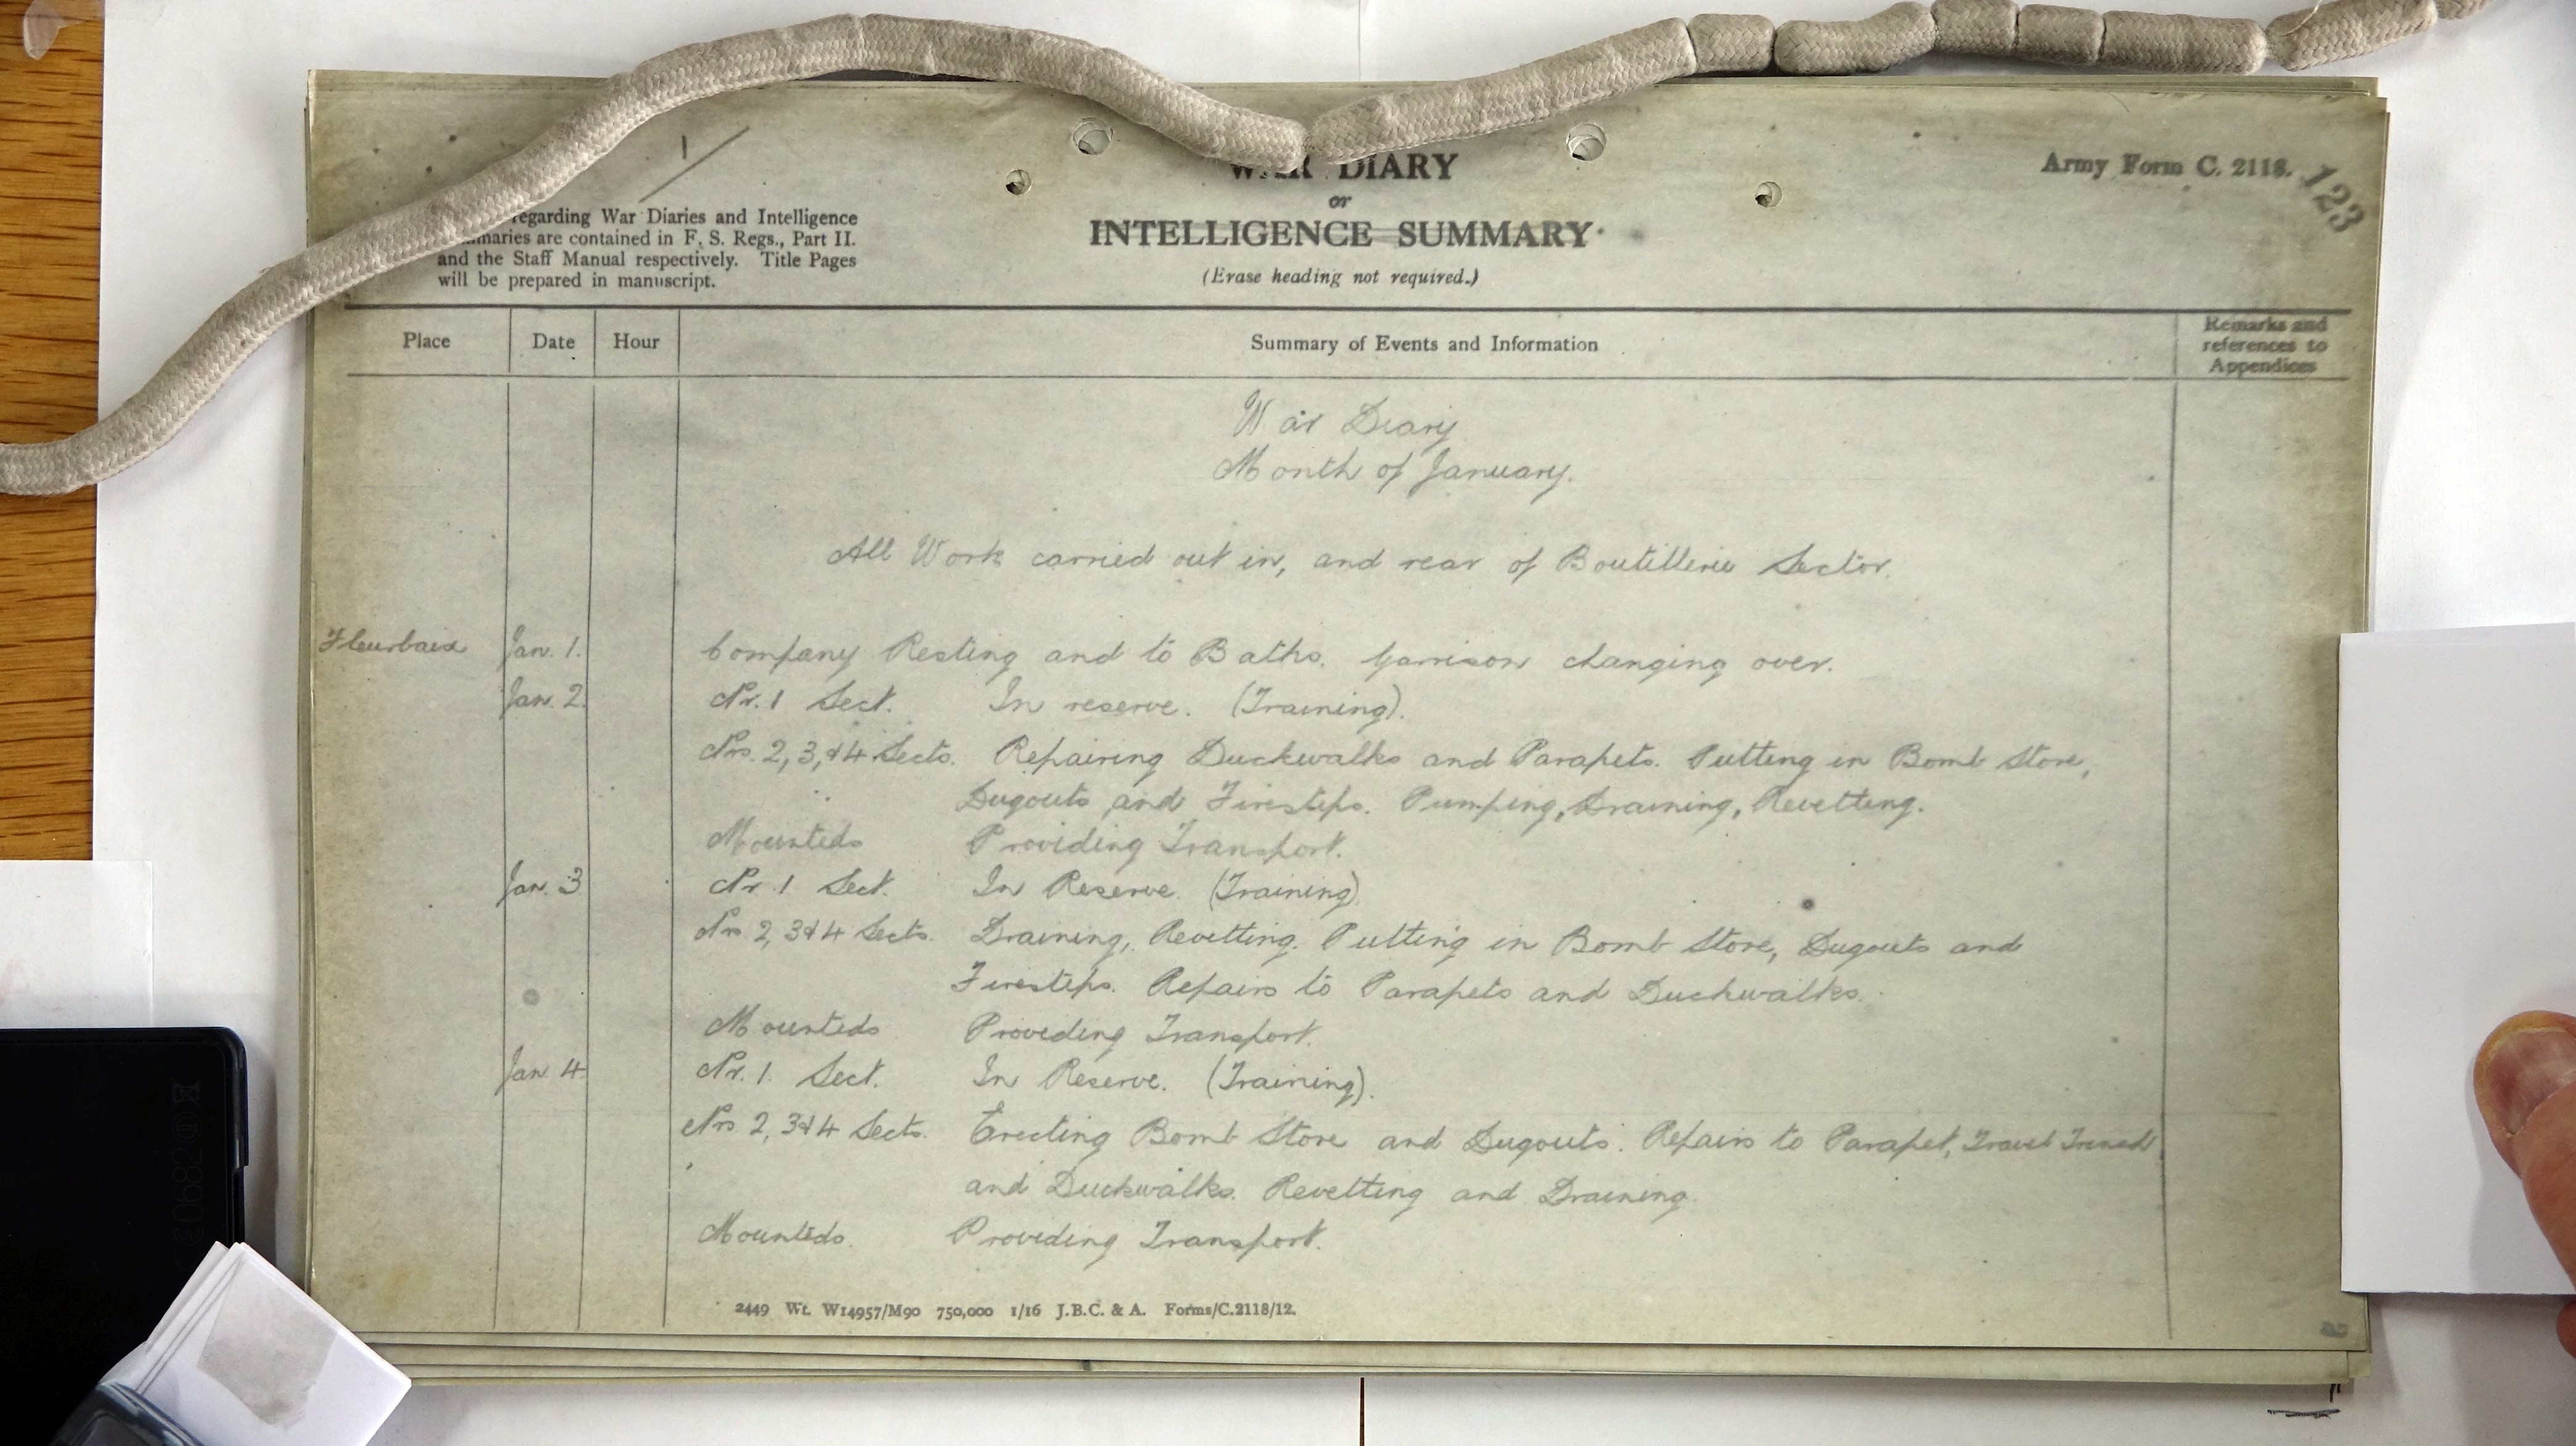 1
WAR DIARY
or
INTELLIGENCE SUMMARY.
(Erase heading not required.)
Army Form C. 2118.
123
regarding War Diaries and Intelligence
are contained in F. S. Regs., Part II.
and the Staff Manual respectively. Title Pages
will be prepared in manuscript.
Place Date Hour Summary of Events and Information Remarks and references to Appendices
War Diary
Month of January.
All Work carried out in, and rear of Boutillerie Sector.
Fleurbaix Jan. 1. Company Resting and to Baths. Garrison changing over.
Jan. 2. Nr. 1 Sect. In reserve. (Training).
Nrs. 2, 3, & 4 Sects. Repairing Duckwalks and Parapets. Putting in Bomb Store,
Dugouts and Firesteps. Pumping, Draining, Revetting.
Mounteds Providing Transport.
Jan. 3 Nr. 1 Sect. In Reserve. (Training).
Nrs 2, 3 & 4 Sects. Draining, Revetting. Putting in Bomb Store, Dugouts and
Firesteps. Repairs to Parapets and Duckwalks.
Mounteds Providing Transport.
Jan. 4 Nr. 1. Sect. In Reserve. (Training).
Nrs 2, 3 & 4 Sects. Erecting Bomb Store and Dugouts. Repairs to Parapet, Travel Trench
and Duckwalks. Revetting and Draining.
Mounteds. Providing Transport.
2449 Wt. W14957/M90 750,000 1/16 J.B.C. & A. Forms/C.2118/12.